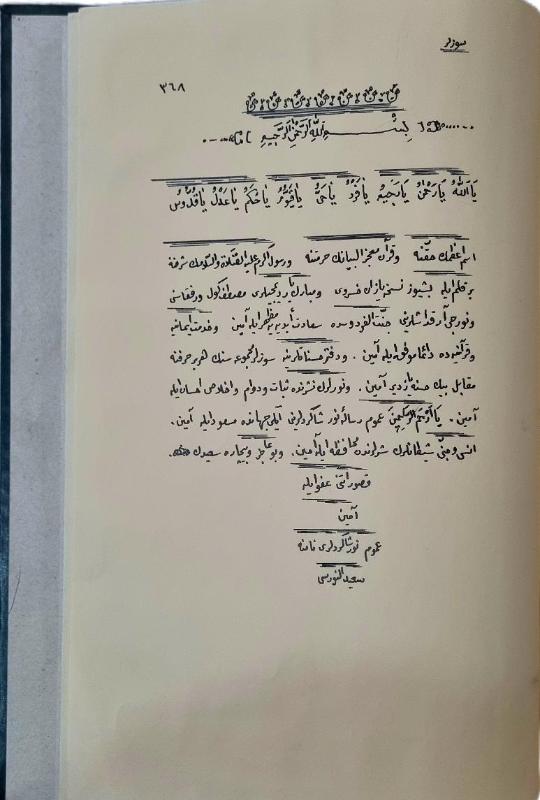 سوزلر
٣٦٨
بِسْمِ اللّٰهِ الرَّحْمٰنِ الرَّحِيمِ
يَا اَللّٰهُ يَا رَحْمٰنُ يَا رَحِيمُ يَا فَرْدُ يَا حَىُّ يَا قَيُّومُ يَا حَكَمُ يَا عَدْلُ يَا قُدُّوسُ
اسم اعظمك حقّنه و قرآن معجز البيانك حرمتنه و رسول اكرم عليه الصّلاة والسّلامك شرفنه
بر قلم ايله بشيوز نسخه يازان خسروى و مبارك ياردیمجيلرى مصطفى كول و رفقاسنى
و نورجى آرقداشلرينى جنّت الفردوسده سعادت ابديه يه مظهر ايله آمين و خدمت ايمانيه
و قرآنيه ده دائما موفّق ايله آمين . و دفتر حسناتلرينه سوزلر مجموعه سنك هر بر حرفنه
مقابل بيك حسنه يازدير آمين . و نورلرك نشرنده ثبات و دوام و اخلاص احسان ايله
آمين . يا ارحم الرّاحمين عموم رسالۀ نور شاكردلرينى ايكى جهانده مسعود ايله آمين .
انسى و جنّى شيطانلرك شرلرندن محافظه ايله آمين . و بو عاجز و بيچاره سعيدك
قصوراتنى عفو ايله
آمين
عموم نور شاكردلرى نامنه
سعيد النّورسى